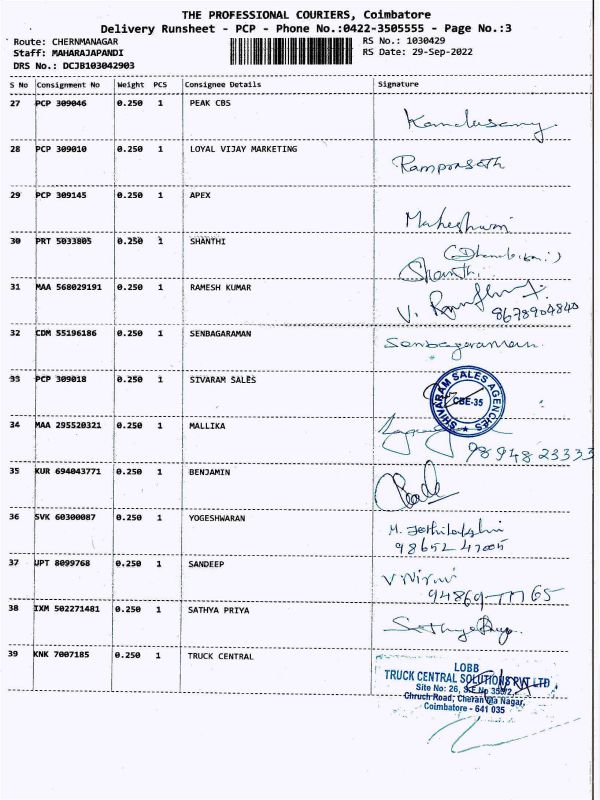 THE PROFESSIONAL COURIERS, Coimbatore
Delivery Runsheet - PCP - Phone No.:0422-3505555 - Page No.:3
Route: CHERNMANAGAR RS No.: 1030429
Staff: MAHARAJAPANDI RS Date: 29-Sep-2022
DRS No.: DCJB103042903
S No Consignment No Weight PCS Consignee Details Signature
27 PCP 309046 0.250 1 PEAK CBS
Kandasamy
28 PCP 309010 0.250 1 LOYAL VIJAY MARKETING
Ramprasath
29 PCP 309145 0.250 1 APEX
Maheshwari
30 PRT 5033805 0.250 1 SHANTHI
Shanthi
31 MAA 568029191 0.250 1 RAMESH KUMAR
V. 8678904840
32 CDM 55196186 0.250 1 SENBAGARAMAN
Senbagaraman
33 PCP 309018 0.250 1 SIVARAM SALES
SHIVARAM SALES AGENCIES
CBE-35
34 MAA 295520321 0.250 1 MALLIKA
9894823333
35 KUR 694043771 0.250 1 BENJAMIN
36 SVK 60300087 0.250 1 YOGESHWARAN
M.
37 UPT 8099768 0.250 1 SANDEEP
V
38 IXM 502271481 0.250 1 SATHYA PRIYA
39 KNK 7007185 0.250 1 TRUCK CENTRAL
LOBB
TRUCK CENTRAL SOLUTIONS PVT LTD
Site No: 26, S.F.No
Chruch Road, Nagar,
Coimbatore - 641 035